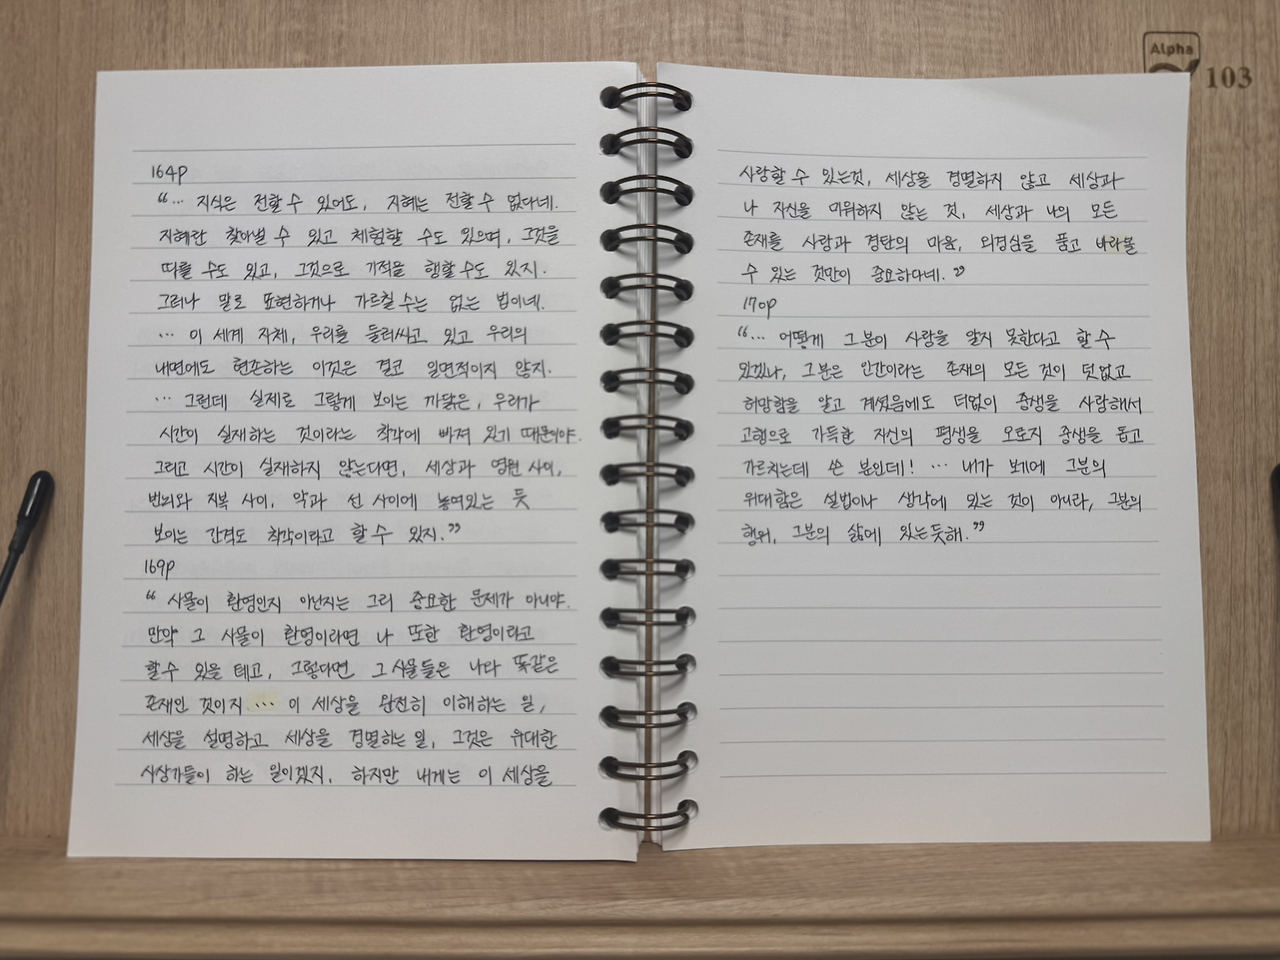 164p
“… 지식은 전할 수 있어도, 지혜는 전할 수 없다네.
지혜란 찾아낼 수 있고 체험할 수도 있으며, 그것을
따를 수도 있고, 그것으로 기적을 행할 수도 있지.
그러나 말로 표현하거나 가르칠 수는 없는 법이네.
… 이 세계 자체, 우리를 둘러싸고 있고 우리의
내면에도 현존하는 이것은 결코 일면적이지 않지.
… 그런데 실제로 그렇게 보이는 까닭은, 우리가
시간이 실재하는 것이라는 착각에 빠져 있기 때문이야.
그리고 시간이 실재하지 않는다면, 세상과 영원 사이,
번뇌와 지복 사이, 악과 선 사이에 놓여있는 듯
보이는 간격도 착각이라고 할 수 있지.”
169p
“ 사물이 환영인지 아닌지는 그리 중요한 문제가 아니야.
만약 그 사물이 환영이라면 나 또한 환영이라고
할 수 있을 테고, 그렇다면 그 사물들은 나와 똑같은
존재인 것이지 … 이 세상을 완전히 이해하는 일,
세상을 설명하고 세상을 경멸하는 일, 그것은 위대한
사상가들이 하는 일이겠지. 하지만 내게는 이 세상을
사랑할 수 있는것, 세상을 경멸하지 않고 세상과
나 자신을 미워하지 않는 것, 세상과 나의 모든
존재를 사랑과 경탄의 마음, 외경심을 품고 바라볼
수 있는 것만이 중요하다네.”
170p
“… 어떻게 그분이 사랑을 알지 못한다고 할 수
있겠나, 그분은 인간이라는 존재의 모든 것이 덧없고
허망함을 알고 계셨음에도 더없이 중생을 사랑해서
고행으로 가득한 자신의 평생을 오로지 중생을 돕고
가르치는데 쓴 분인데! … 내가 보기에 그분의
위대함은 설법이나 생각에 있는 것이 아니라, 그분의
행위, 그분의 삶에 있는 듯해.”
Alpha
103